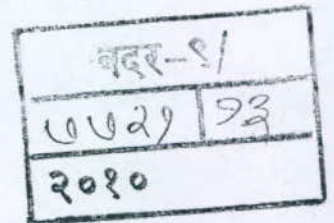 बदर-९/
७७२१ १३
२०१०